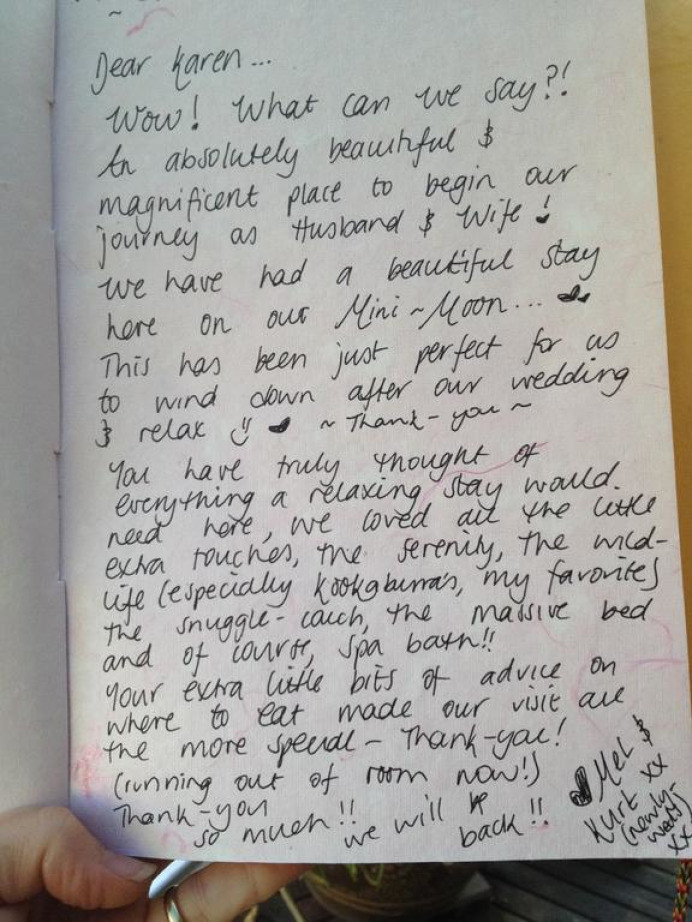 ~
Dear Karen...
Wow! What can we say?!
An absolutely beautiful &
magnificent place to begin our
journey as Husband & Wife!
We have had a beautiful stay
here on our Mini~Moon...
This has been just perfect for us
to wind down after our wedding
& relax ~ Thank-you ~
You have truly thought of
everything a relaxing stay would
need here, we loved all the little
extra touches, the serenity, the wild-
life (especially Kookaburra's, my favorite)
the snuggle-couch, the massive bed
and of course, spa bath!!
Your extra little bits of advice on
where to eat made our visit all
the more special - Thank-you!
(running out of room now!)
Thank-you
so much!! we will be
back!!
Mel &
Kurt xx
(newly-
weds)
xx